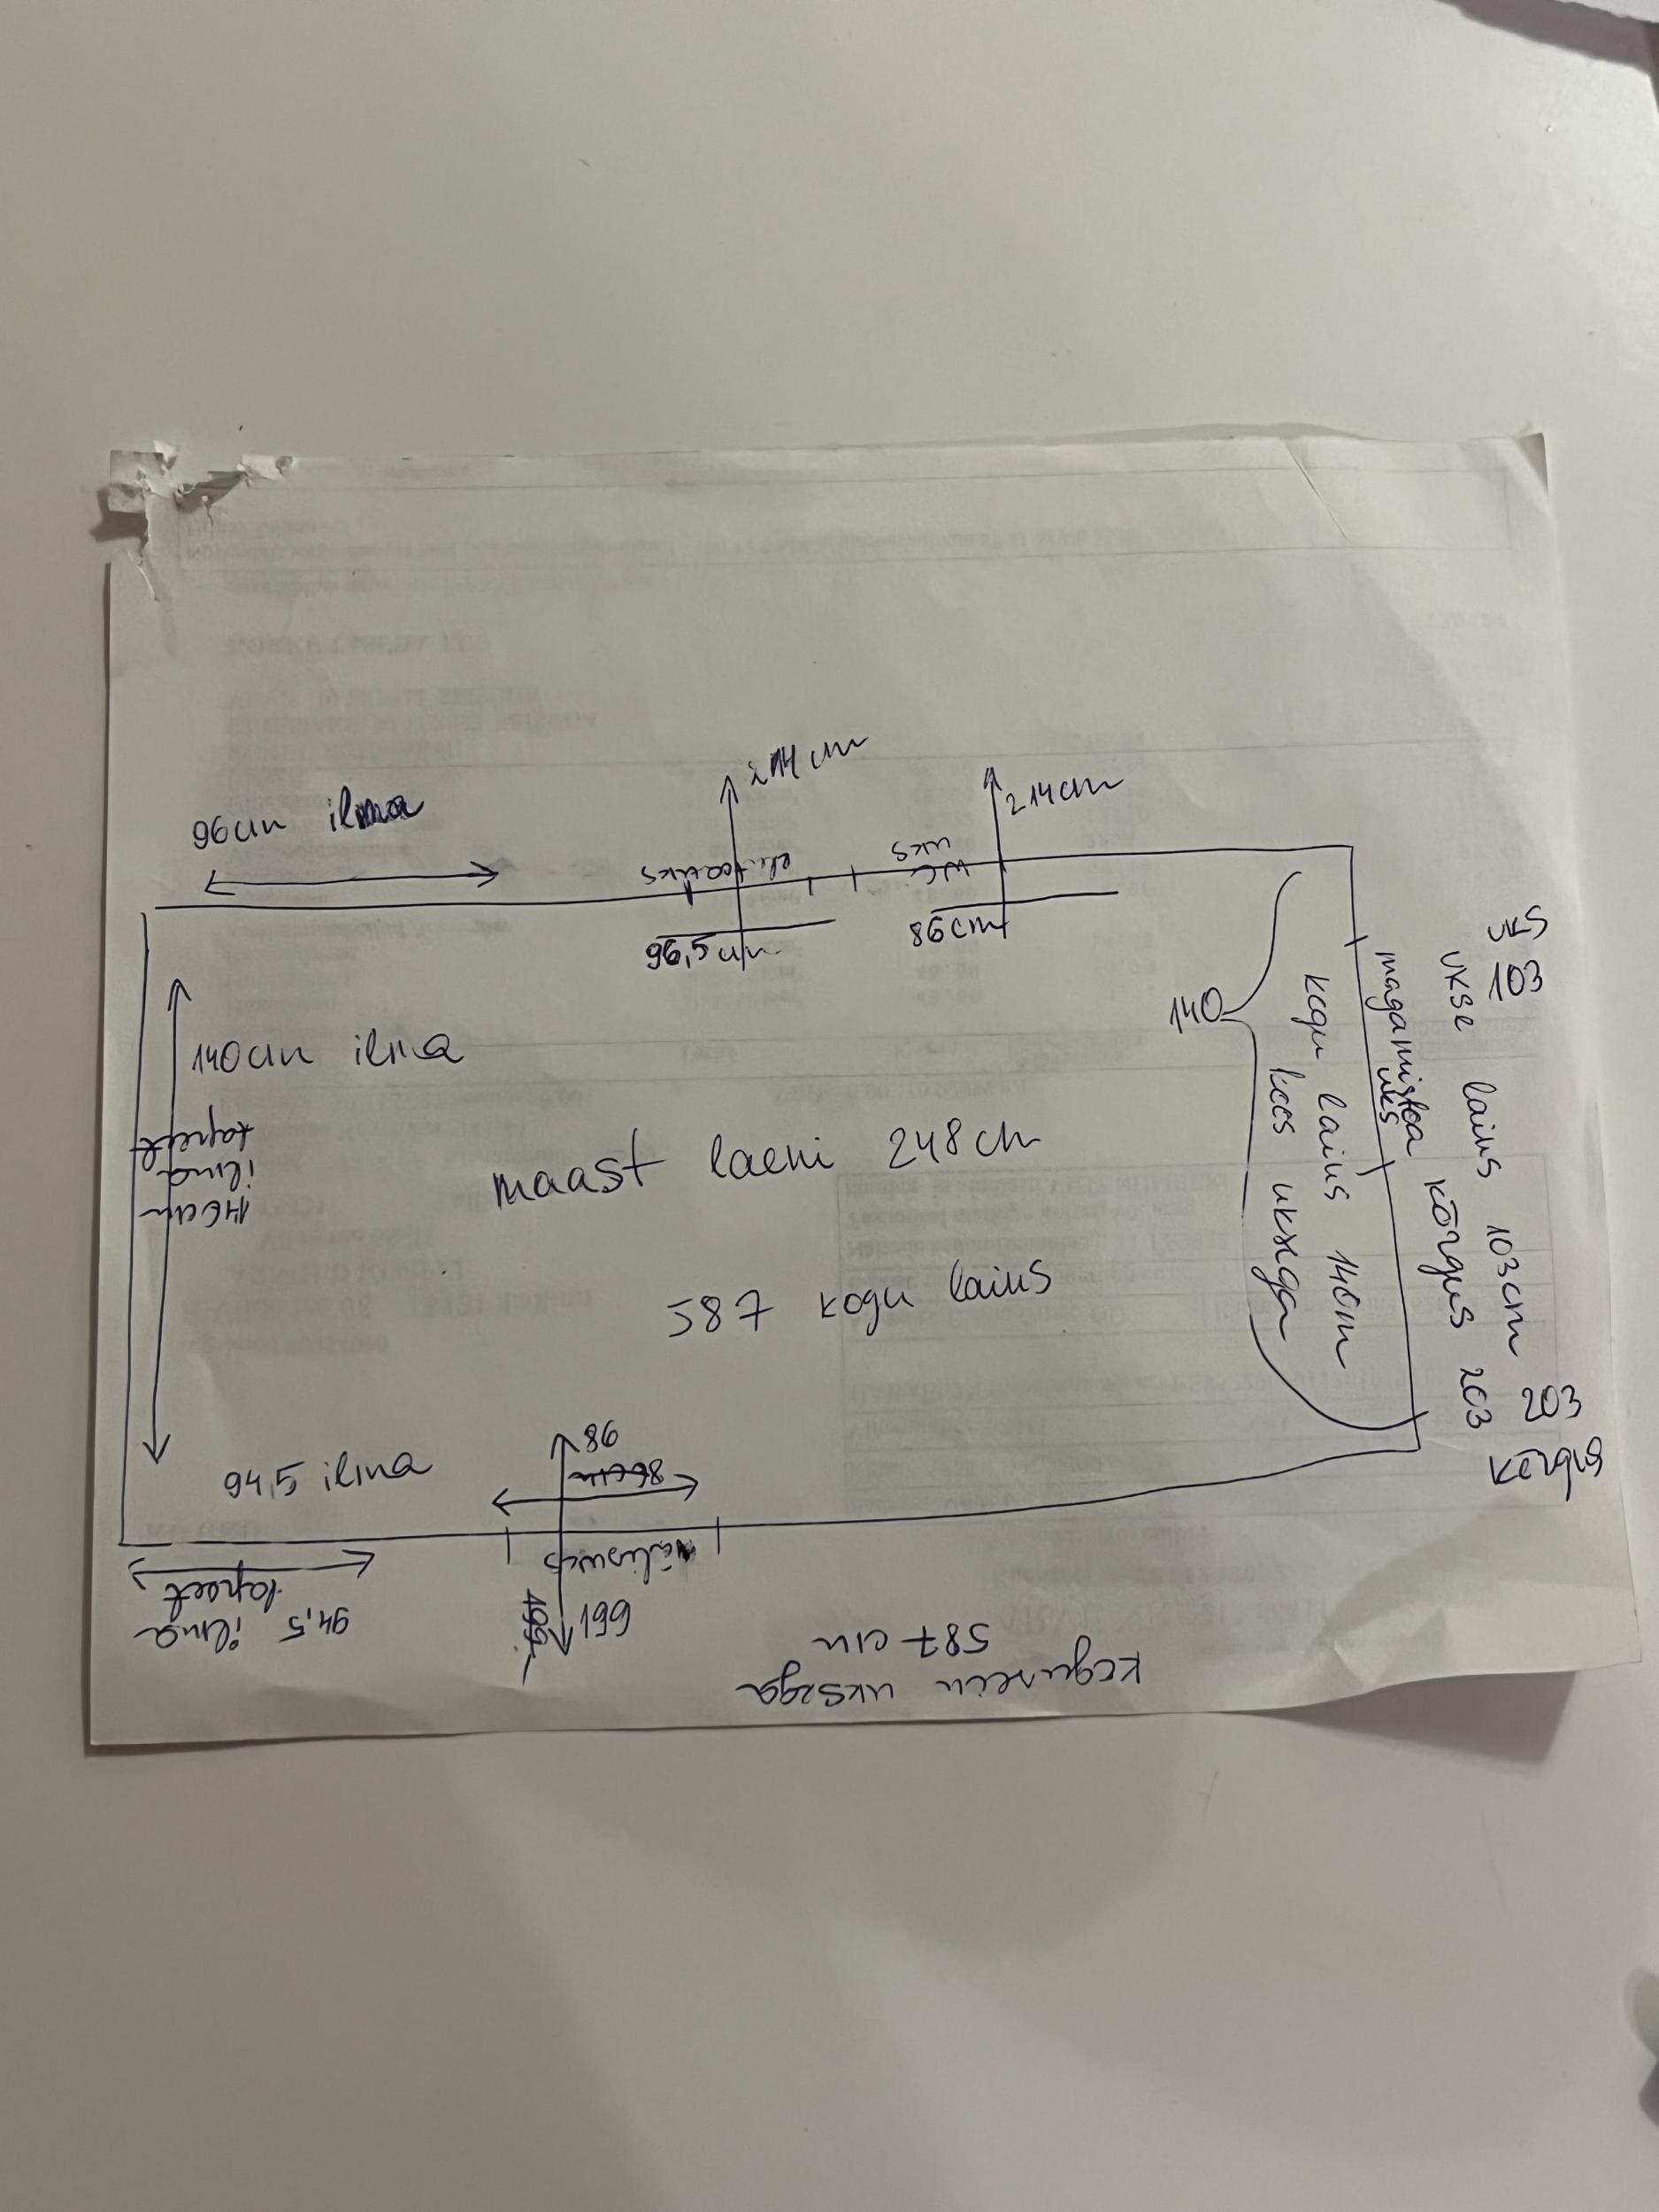 96cm ilma
214cm
214cm
elutoauks
WC
uks
96,5cm
86cm
140cm ilma
146cm
ilma
tapeet
maast laeni 248cm
587 kogu laius
140
kogu laius 140cm
koos uksega
magamistoa
uks
uks
103
ukse laius 103cm
kõrgus 203
203
kõrgus
94,5 ilma
86
86cm
välisuks
199
94,5
ilma
tapeet
kogu sein uksega
587 cm